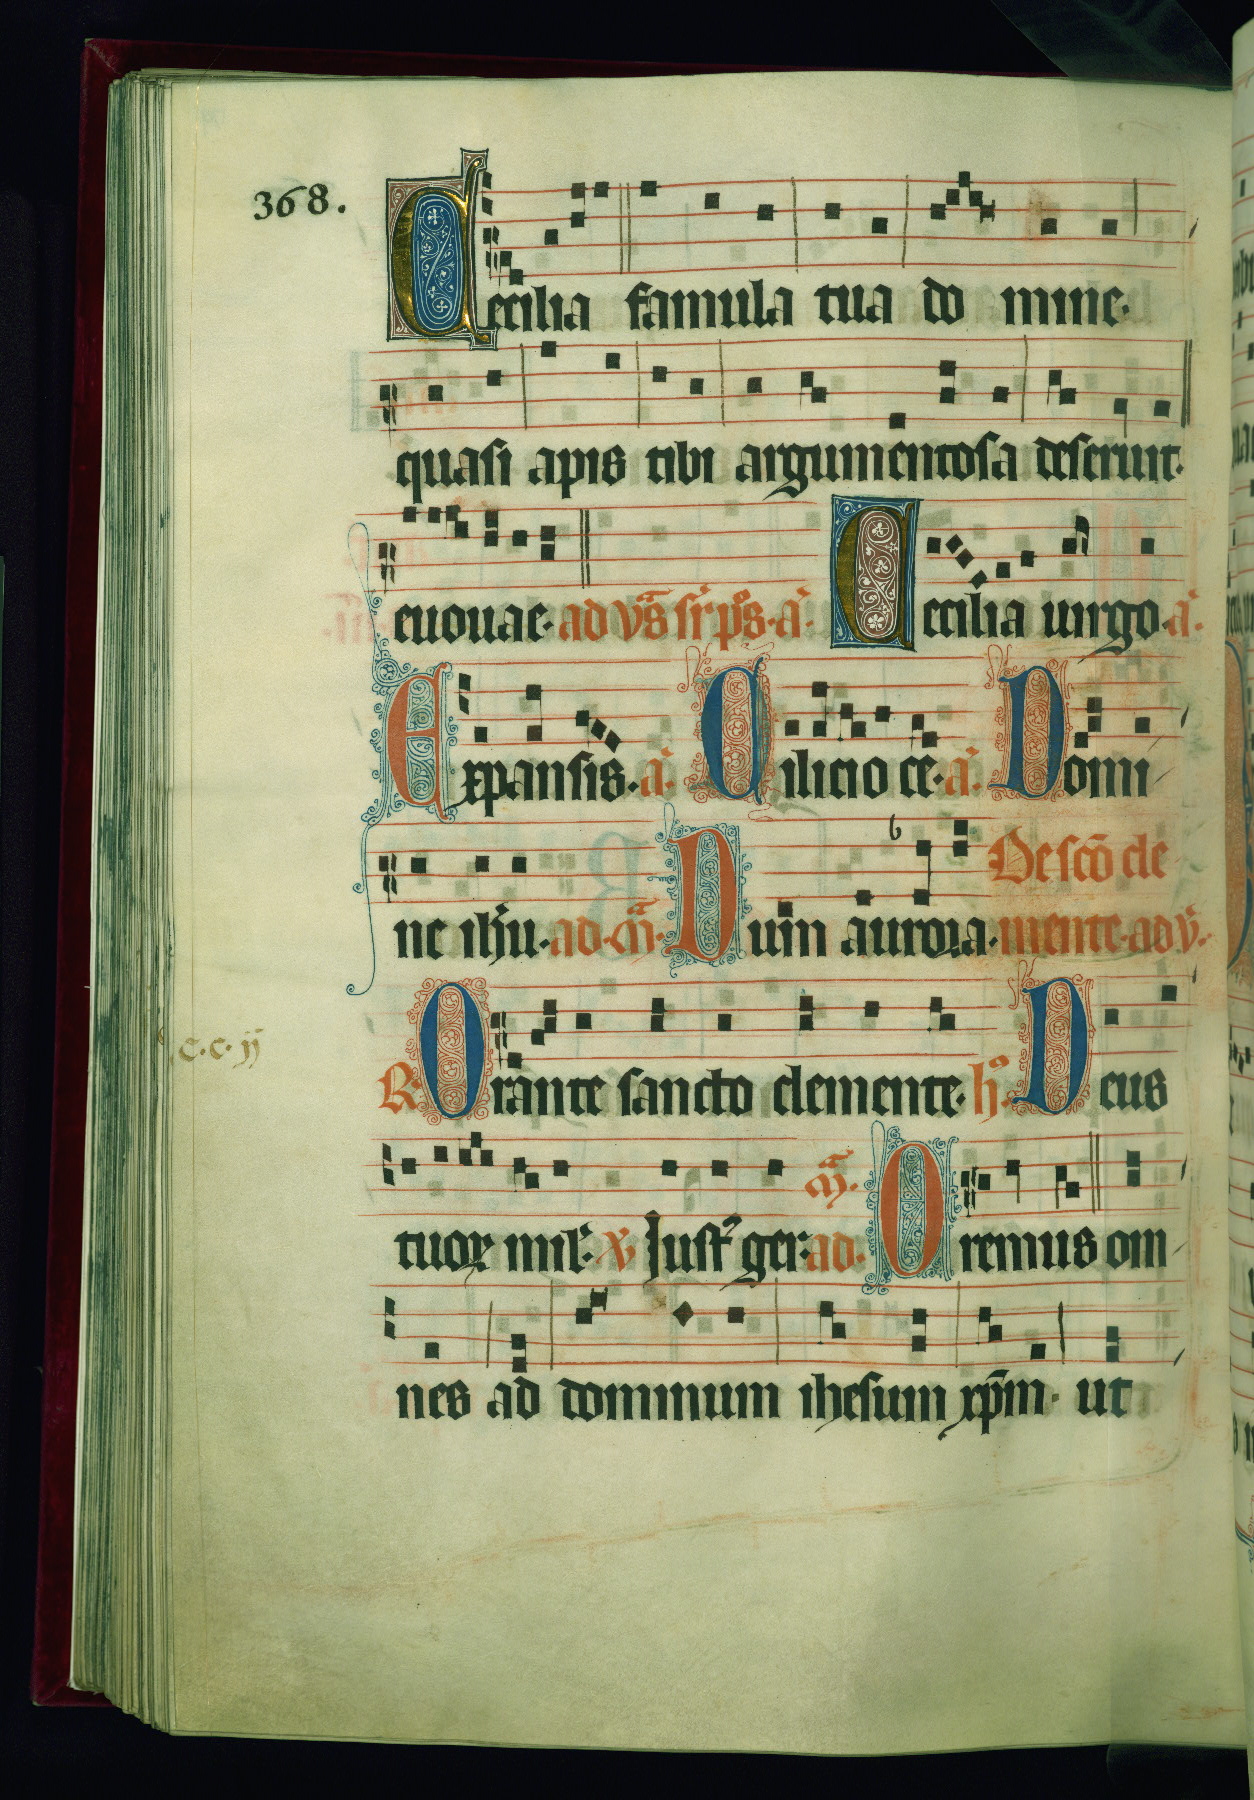 368.
Cecilia famula tua do mine.
quasi apis tibi argumentosa deseruit.
euouae. ad vs̄ sr̄ p̄s. a. Cecilia uirgo. a.
Expansis. a. Cilicio ce. a. Domi
De sco͞ cle
ne ih̄u. ad. m̄. Dum aurora. mente. ad v̄.
R. Orante sancto clemente. h̄. Deus
c. c. ij
m̄.
tuor mil. v Just ger: ad. Oremus om
nes ad dominum ihesum xp̄m. ut